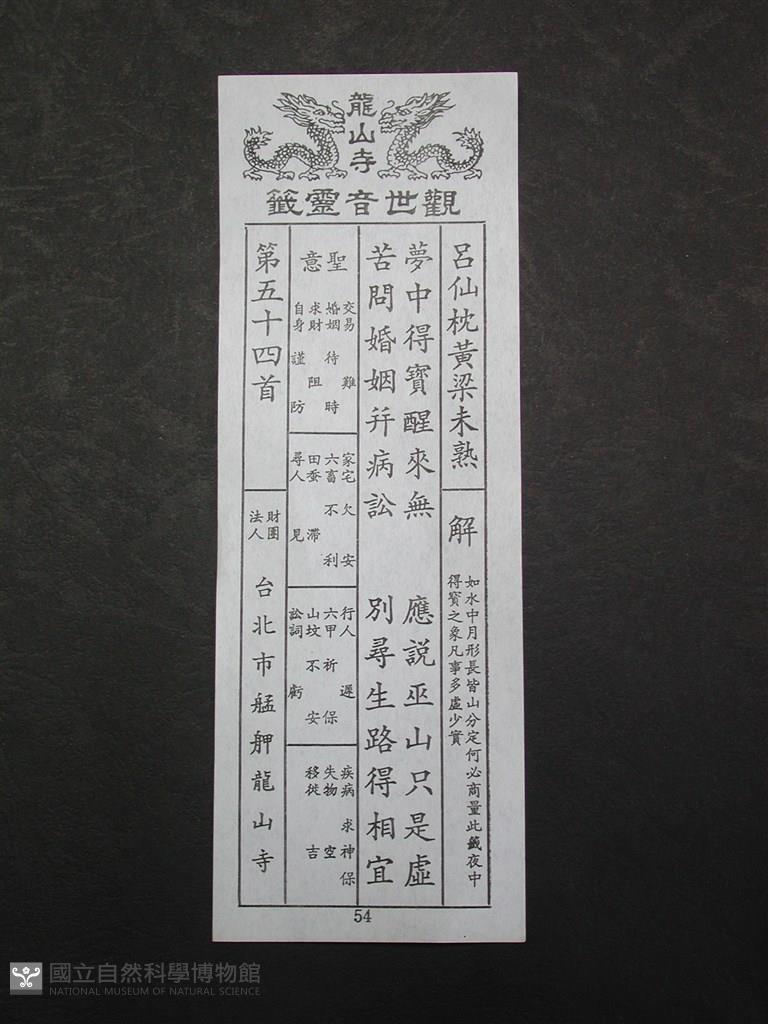 龍山寺
觀世音靈籤
呂仙枕黃梁未熟
解
如水中月形長皆山分定何必商量此籤夜中
得寶之象凡事多虛少實
夢中得寶醒來無 應說巫山只是虛
苦問婚姻并病訟 別尋生路得相宜
聖意
交易 難
婚姻 待時
求財 阻
自身 謹防
家宅 欠安
六畜 不利
田蚕 滯
尋人 見
行人 遲
六甲 祈保
山坟 不安
訟詞 虧
疾病 求神保
失物 空
移徙 吉
第五十四首
財團法人
台北市艋舺龍山寺
54
國立自然科學博物館
NATIONAL MUSEUM OF NATURAL SCIENCE